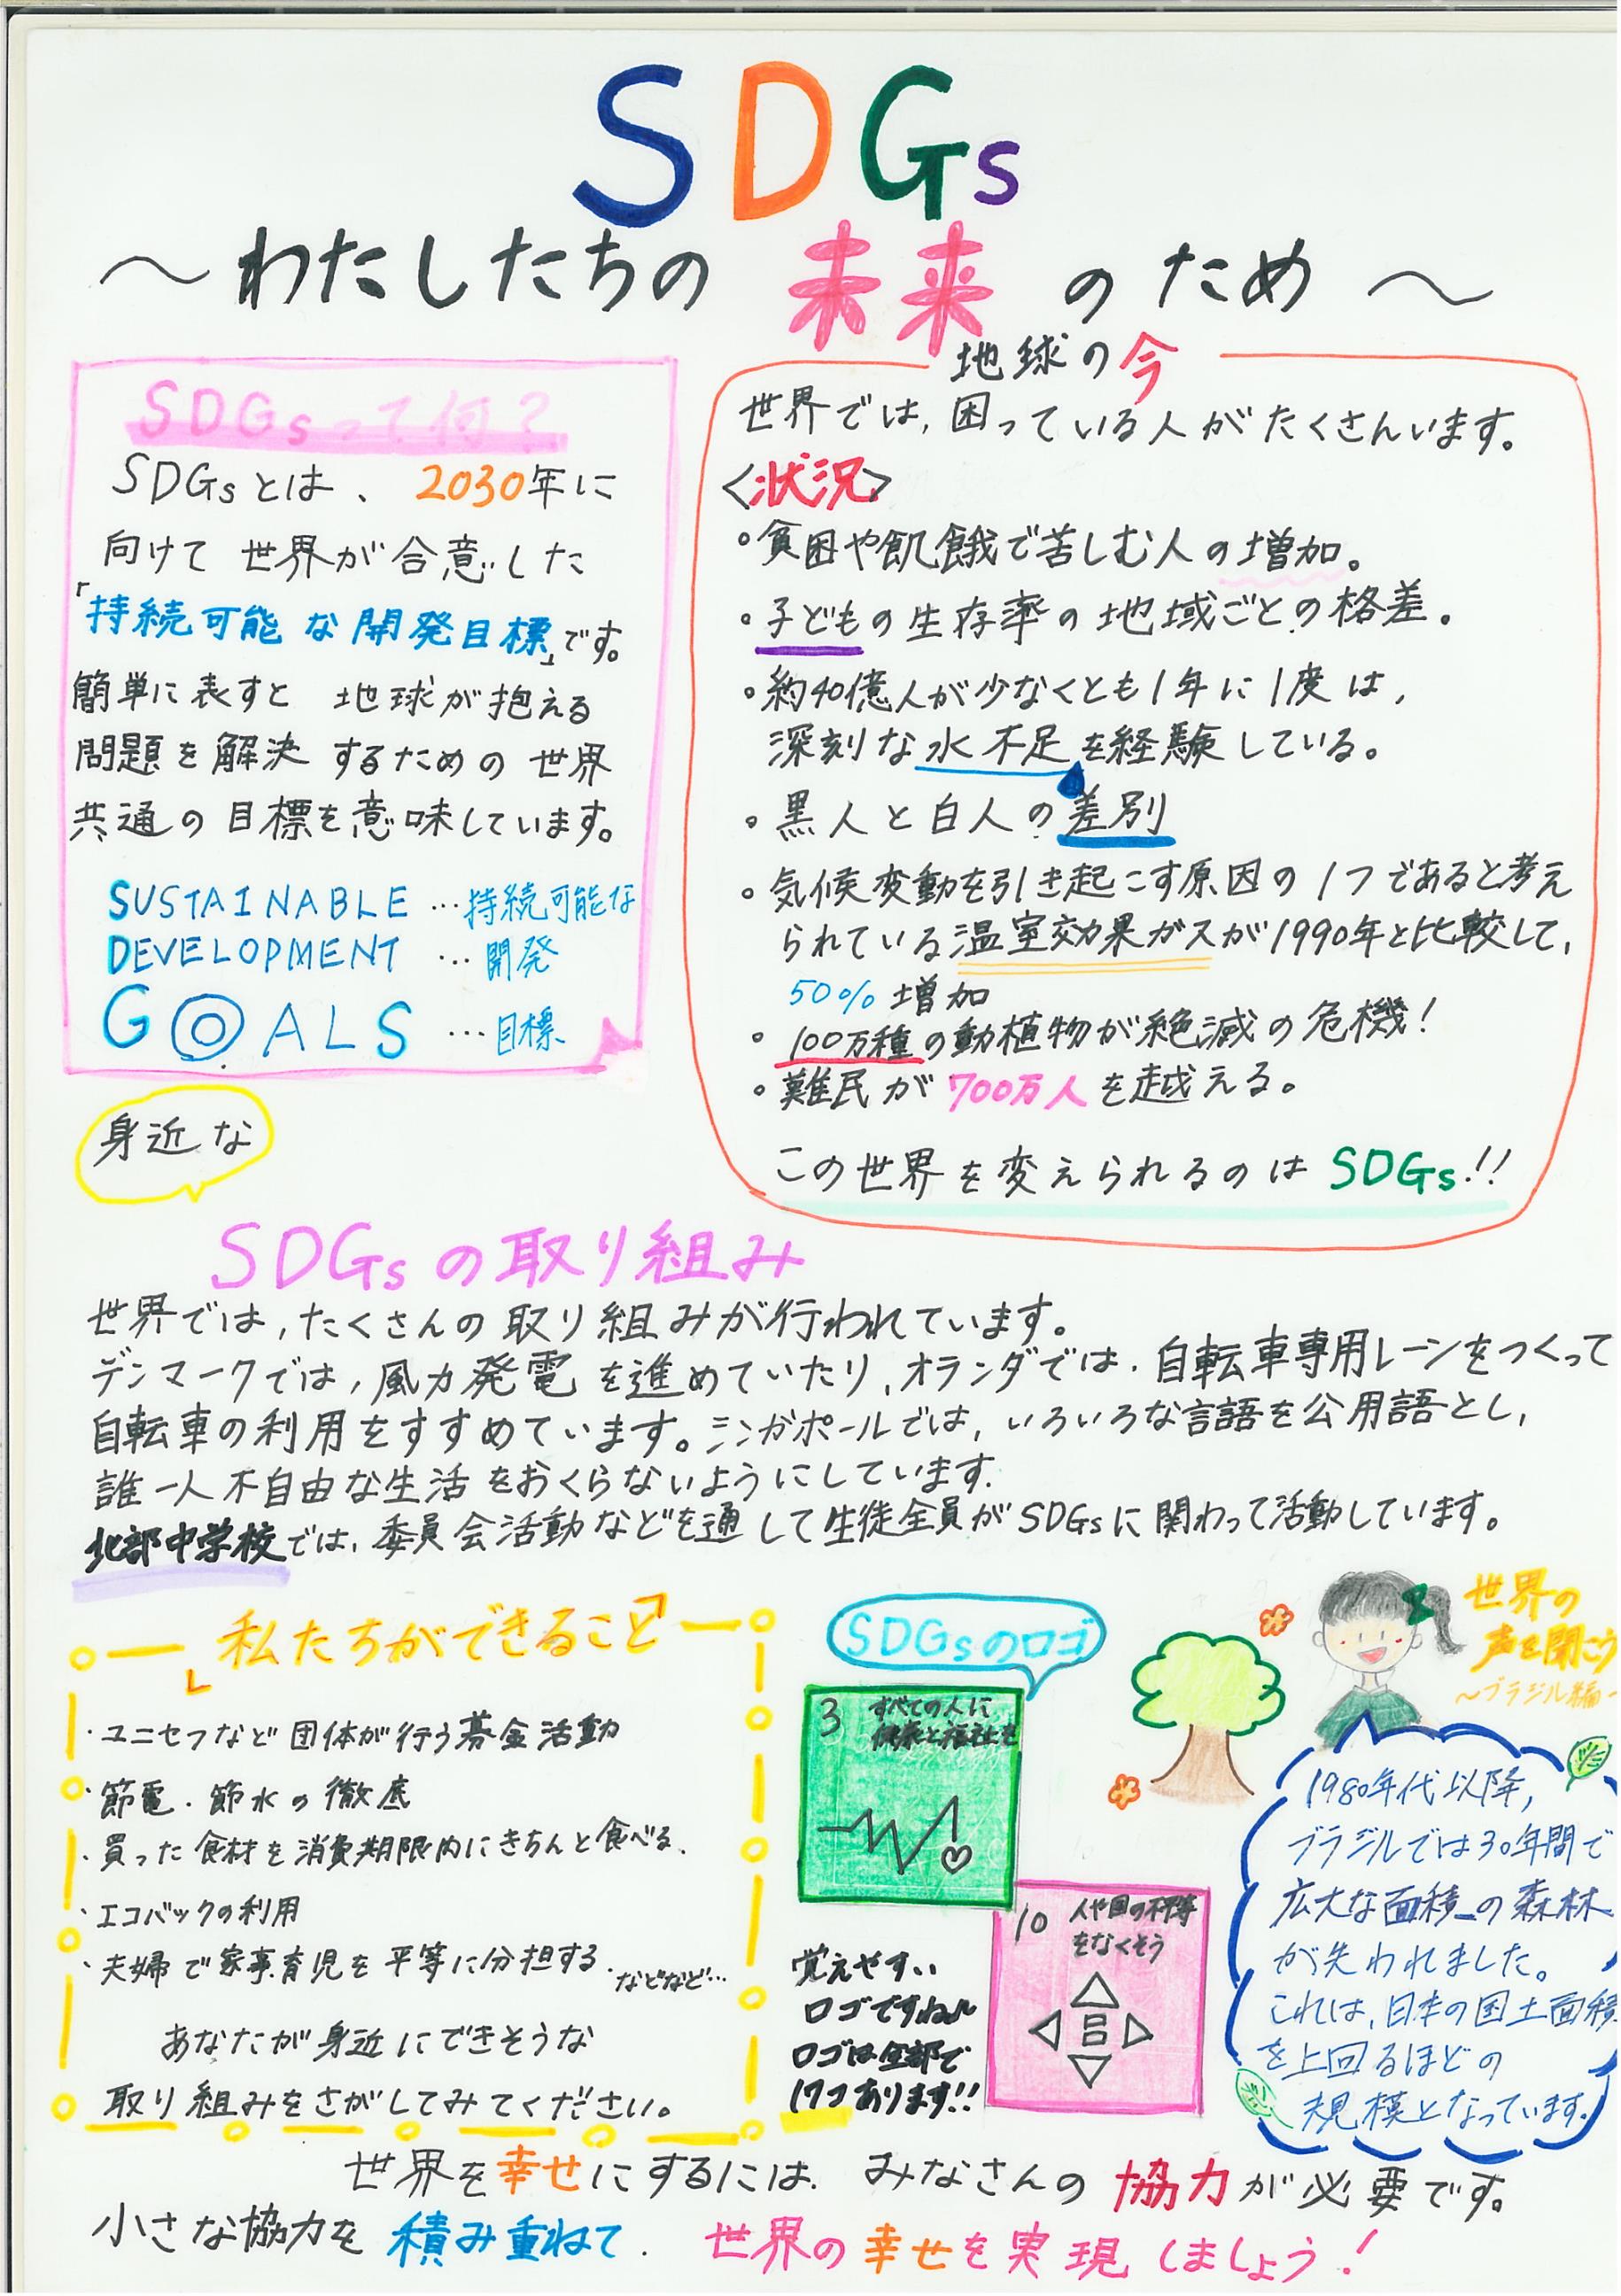 SDGs
～わたしたちの未来のため～
SDGsって何？
SDGsとは、2030年に
向けて世界が合意した
「持続可能な開発目標」です。
簡単に表すと 地球が抱える
問題を解決するための世界
共通の目標を意味しています。
SUSTAINABLE …持続可能な
DEVELOPMENT …開発
GOALS …目標
地球の今
世界では,困っている人がたくさんいます。
<状況>
・貧困や飢餓で苦しむ人の増加。
・子どもの生存率の地域ごとの格差。
・約40億人が少なくとも1年に1度は,
深刻な水不足を経験している。
・黒人と白人の差別
・気候変動を引き起こす原因の1つであると考え
られている温室効果ガスが1990年と比較して,
50%増加
・100万種の動植物が絶滅の危機!
・難民が700万人を越える。
この世界を変えられるのはSDGs!!
身近な
SDGsの取り組み
世界では,たくさんの取り組みが行われています。
デンマークでは,風力発電を進めていたり,オランダでは,自転車専用レーンをつくって
自転車の利用をすすめています。シンガポールでは,いろいろな言語を公用語とし,
誰一人不自由な生活をおくらないようにしています.
北部中学校では,委員会活動などを通して生徒全員がSDGsに関わって活動しています。
「私たちができること」
・ユニセフなど団体が行う募金活動
・節電.節水の徹底
・買った食材を消費期限内にきちんと食べる.
・エコバックの利用
・夫婦で家事育児を平等に分担する.などなど…
あなたが身近にできそうな
取り組みをさがしてみてください。
SDGsのロゴ
3 すべての人に
健康と福祉を
10 人や国の不平等
をなくそう
覚えやすい
ロゴですね♪
ロゴは全部で
17コあります!!
世界の
声を聞こう
～ブラジル編～
1980年代以降,
ブラジルでは30年間で
広大な面積の森林
が失われました。
これは,日本の国土面積
を上回るほどの
規模となっています.
世界を幸せにするには.みなさんの協力が必要です。
小さな協力を積み重ねて.世界の幸せを実現しましょう!